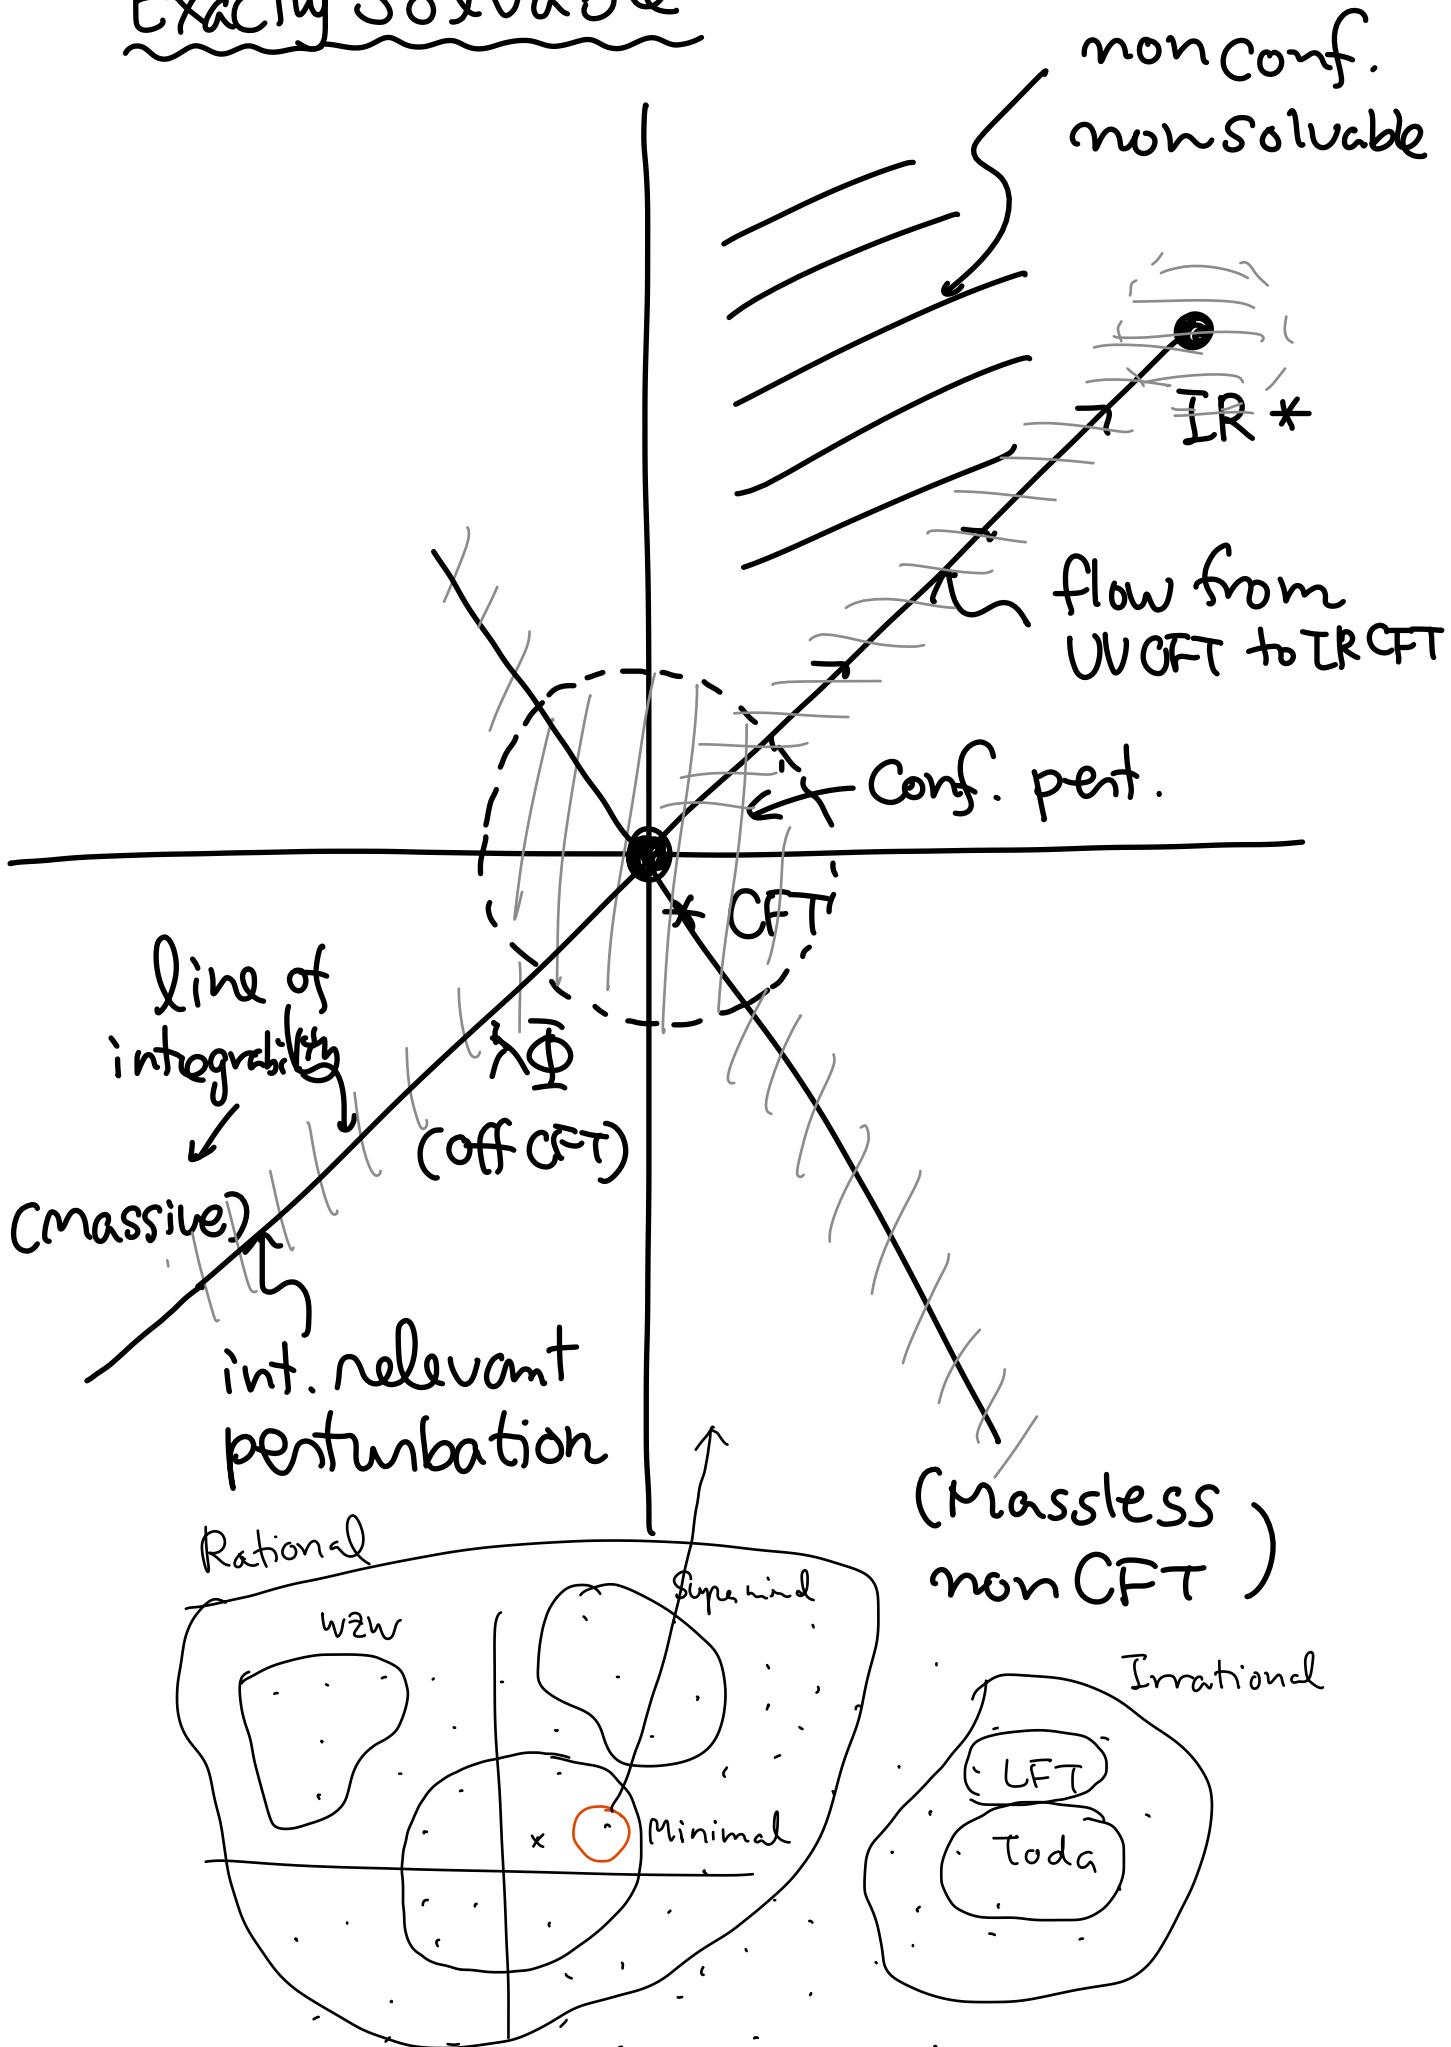 Exactly Solvable
non conf.
non solvable
IR *
flow from
UV CFT to IR CFT
Conf. pert.
* CFT
line of
integrability
λΦ
(off CFT)
(massive)
int. relevant
perturbation
(Massless
non CFT)
Rational
WZW
Supermin
Minimal
x
Irrational
LFT
Toda